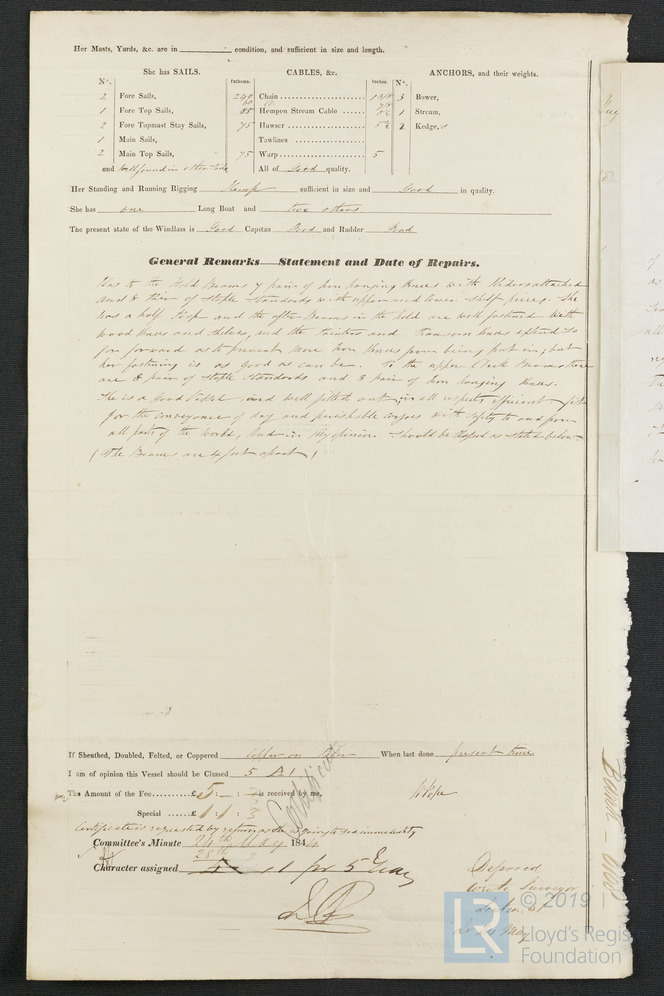 Her Masts, Yards, &c. are in condition, and sufficient in size and length.
She has SAILS.
CABLES, &c.
ANCHORS, and their weights.
N°.
Fathoms.
Inches.
N°.
2 Fore Sails,
240 Chain
3 Bower,
1 Fore Top Sails,
85 Hempen Stream Cable
1 Stream,
2 Fore Topmast Stay Sails,
75 Hawser 5½
2 Kedge,s
1 Main Sails,
Towlines
2 Main Top Sails,
75 Warp 5
and well found in other Sails
All of Good quality.
Her Standing and Running Rigging Hemp sufficient in size and Good in quality.
She has one Long Boat and two others
The present state of the Windlass is Good Capstan Good and Rudder Good
General Remarks Statement and Date of Repairs.
Has to the Hold Beams 7 pair of Iron hanging Knees with Riders attached
and 8 pair of Staple Standards with upper and lower Shelf pieces. She
has a half Poop and the after Beams in the hold are well fastened with
wood Knees and Shelves, and the and Transom Knees extend so
far forward as to prevent more Iron Knees from being put in, but
her fastening is as good as can be. To the upper Deck Beams there
are 8 pair of Staple Standards and 8 pair of Iron hanging Knees.
She is a good Vessel and well fitted out, in all respects efficient fit
for the conveyance of dry and perishable cargoes with safety to and from
all parts of the World, and in my opinion should be Classed as stated below
(The Beams are 4 feet apart)
If Sheathed, Doubled, Felted, or Coppered Copper on When last done present time
I am of opinion this Vessel should be Classed 5 A1
The Amount of the Fee £5 : - : is received by me,
Special £1 : 1 :
Certificate is requested by return as she is going to sea immediately
Committee's Minute 24th May 184
28th
Character assigned A1 for 5 Years
Deferred
wrote Surveyor
May
© 2019
LR
Lloyd's Register
Foundation